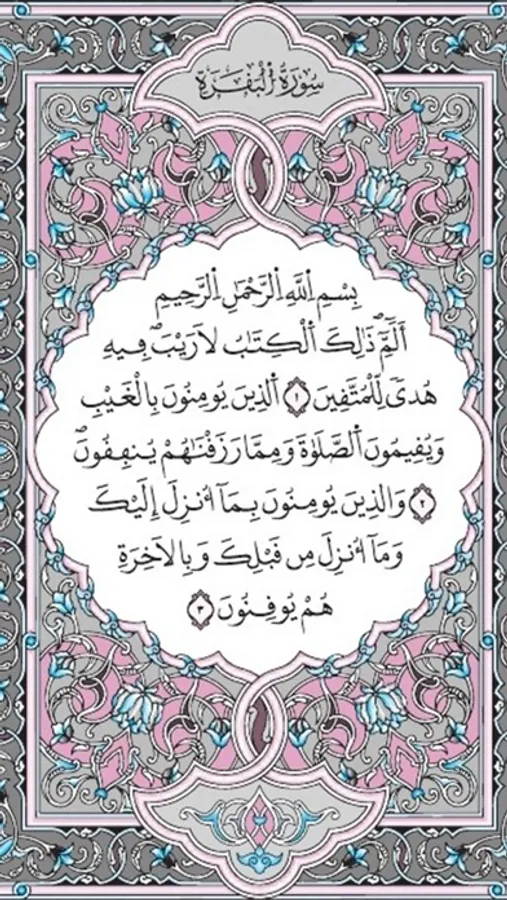 سُورَةُ اُ۬لْبَقَرَةِ
بِسْمِ اِ۬للَّهِ اِ۬لرَّحْمَٰنِ اِ۬لرَّحِيمِ
أَلَٓمِّٓۖ ذَٰلِكَ اَ۬لْكِتَٰبُ لَا رَيْبَۖ فِيهِ
هُدىٗ لِّلْمُتَّقِينَ ١ اَ۬لذِينَ يُومِنُونَ بِالْغَيْبِ
وَيُقِيمُونَ اَ۬لصَّلَوٰةَ وَمِمَّا رَزَقْنَٰهُمْ يُنفِقُونَۖ
٢ وَالذِينَ يُومِنُونَ بِمَآ أُنزِلَ إِلَيْكَ
وَمَآ أُنزِلَ مِن قَبْلِكَ وَبِالَاخِرَةِ
هُمْ يُوقِنُونَ ٣